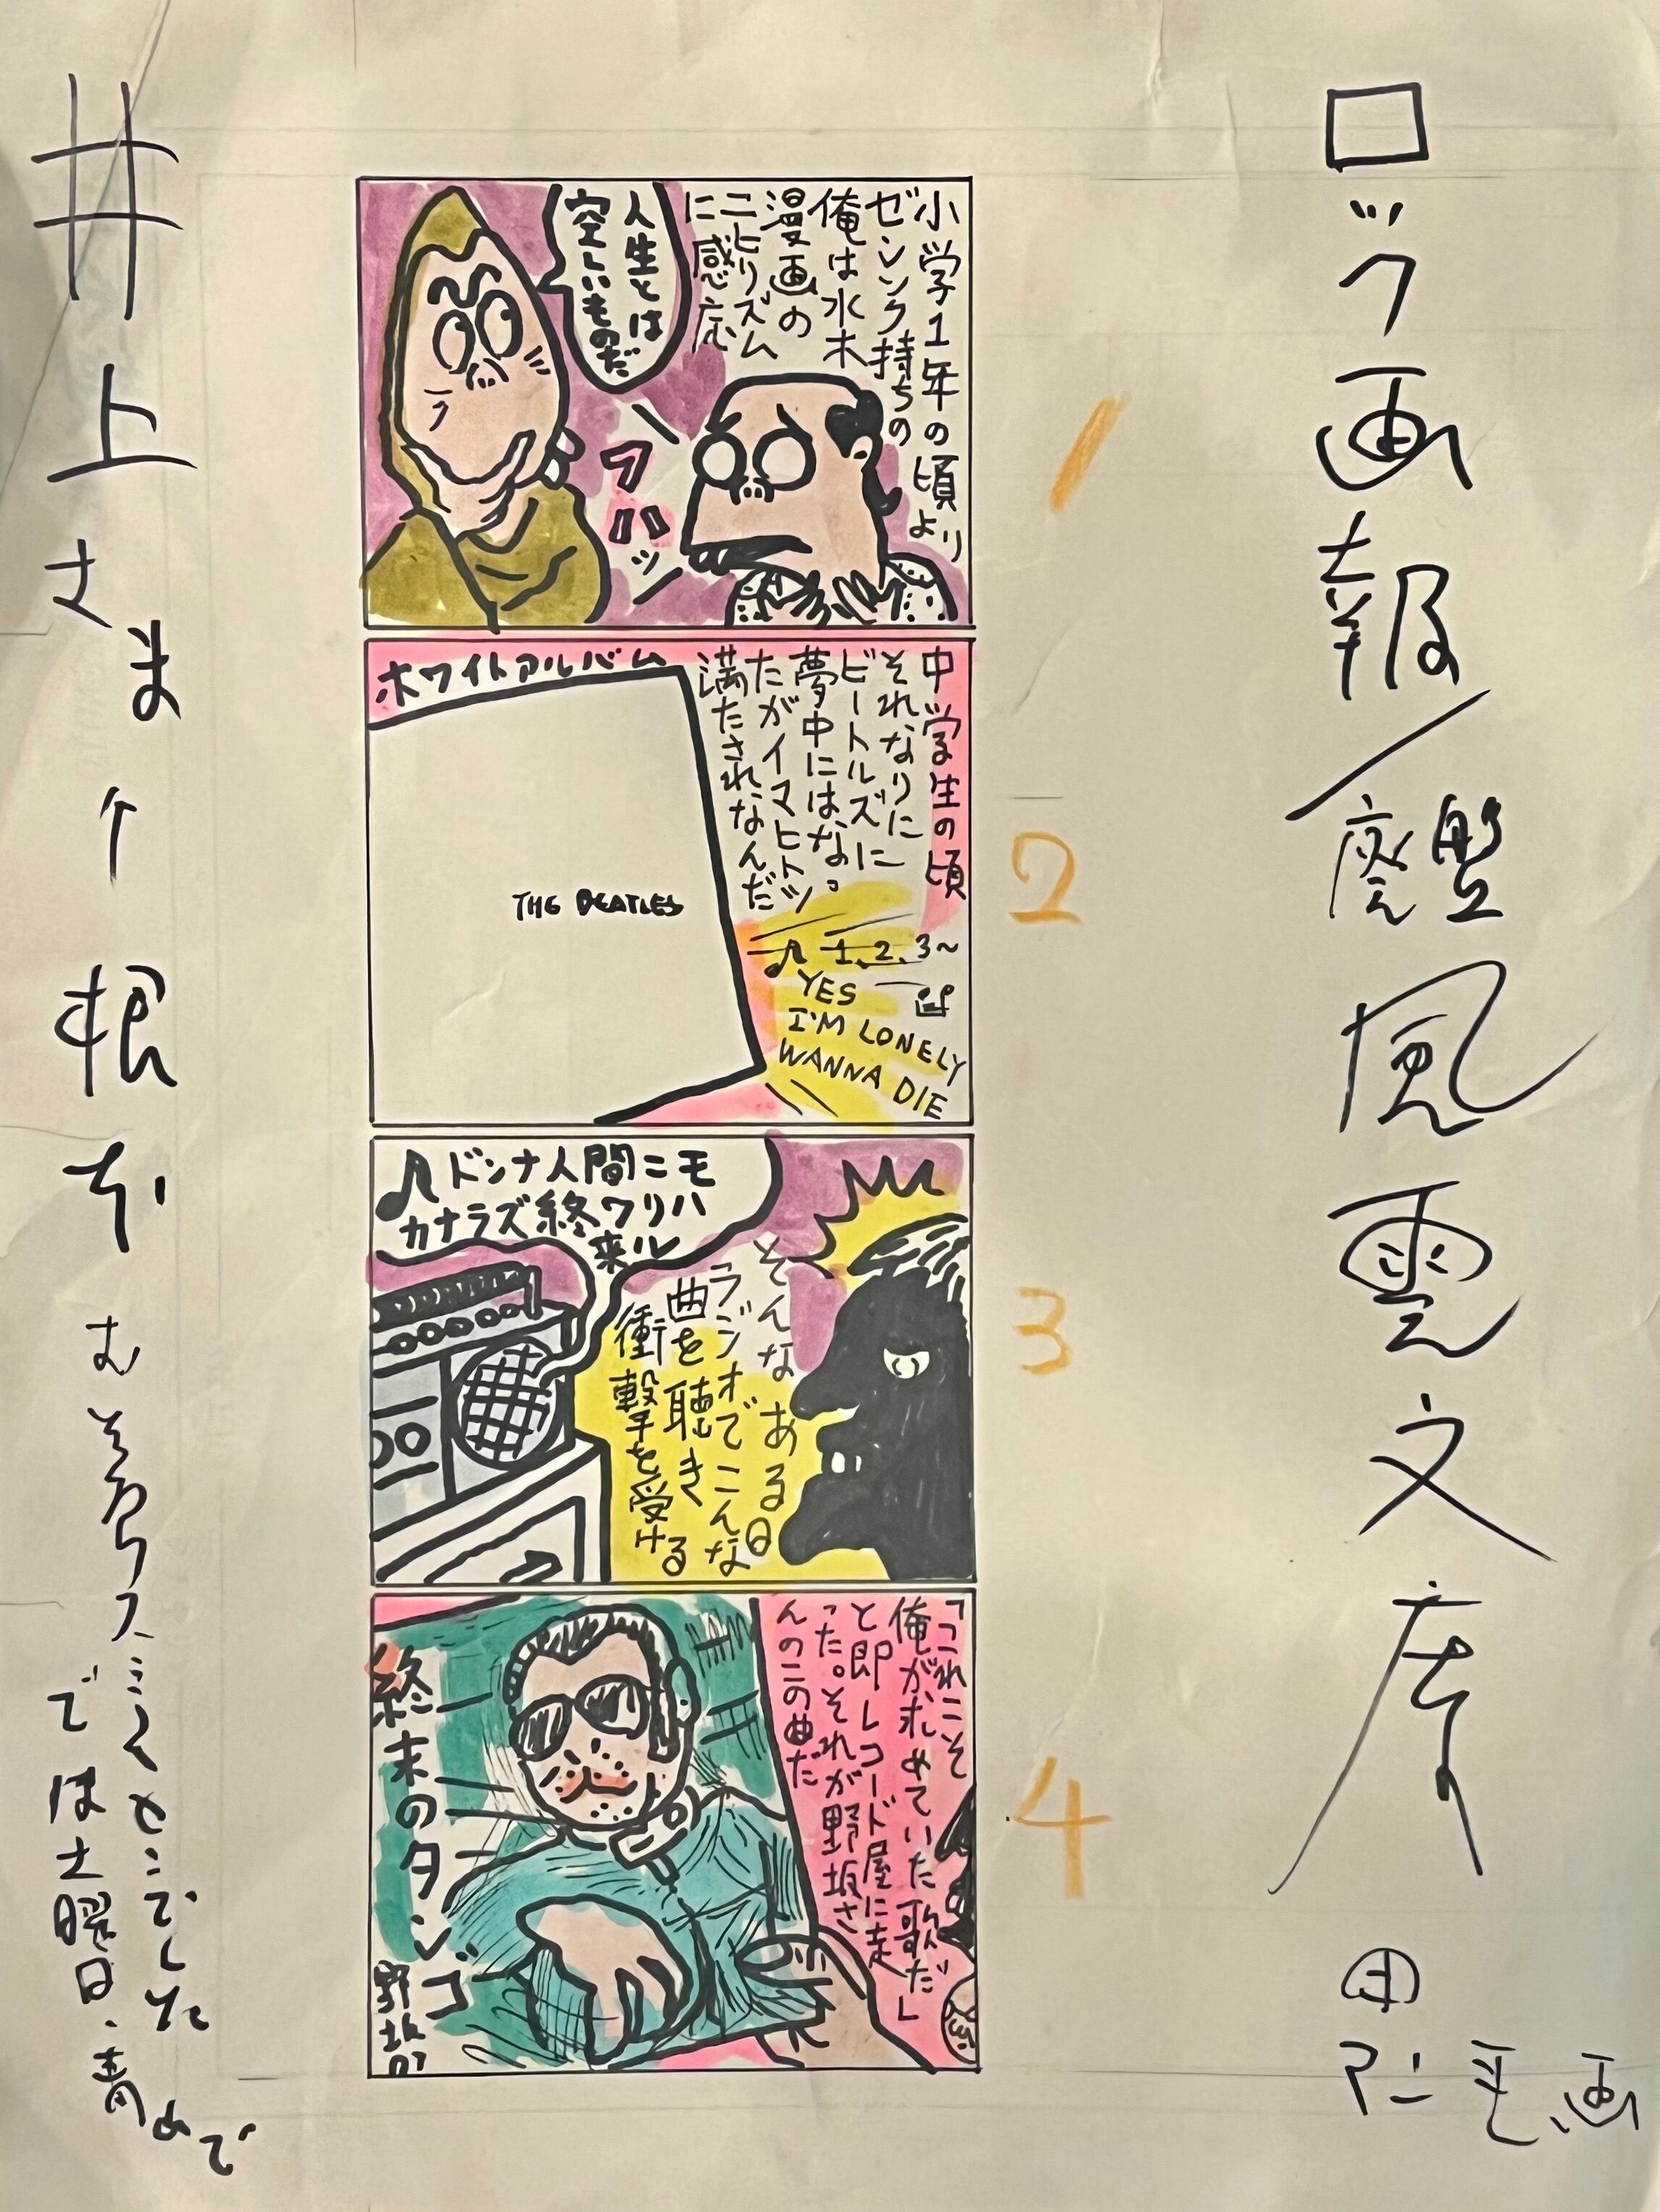 ロック画報
廃盤風雲文庫
画
井上さま
根本
では土曜日、
小学1年の頃より
ゼンソク持ちの
俺は水木
漫画の
ニヒリズム
に感応
人生とは
空しいものだ
フハッ
1
中学生の頃
それなりに
ビートルズに
夢中にはなっ
たがイマヒトツ
満たされなんだ
ホワイトアルバム
THE BEATLES
♪1、2、3~
YES
I'M LONELY
WANNA DIE
2
♪ドンナ人間ニモ
カナラズ終ワリハ
来ル
そんなある日
ラジオでこんな
曲を聴き
衝撃を受ける
3
「これこそ
俺が求めていた歌だ」
と即レコード屋に走
った。それが野坂さ
んのこの曲だ
終末のタンゴ
野坂
4